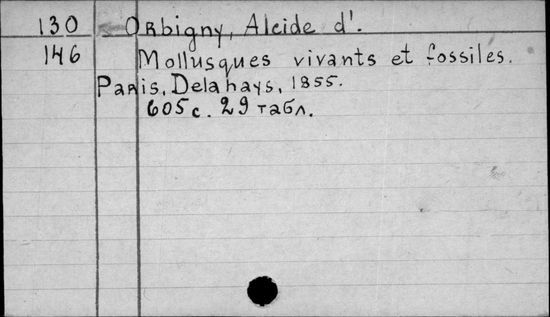 130 Orbigny, Alcide d'.
146 Mollusques vivants et fossiles.
Paris, Delahays, 1855.
605 с. 29 табл.